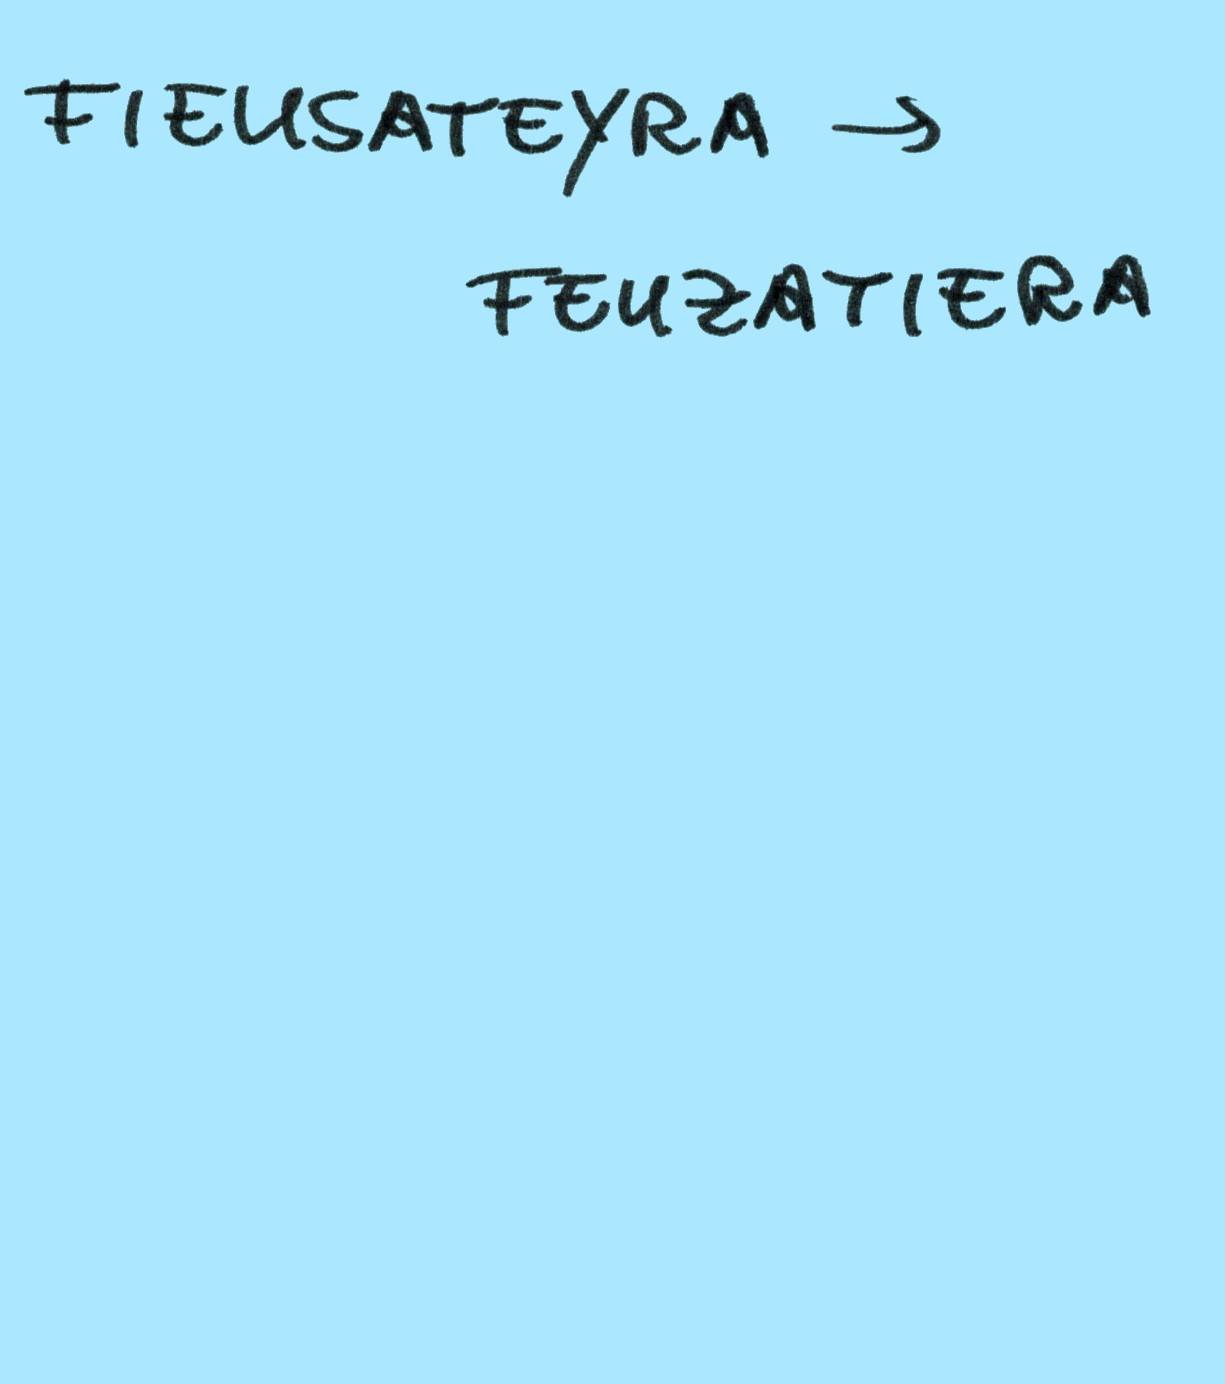 FIEUSATEYRA →
FEUZATIERA